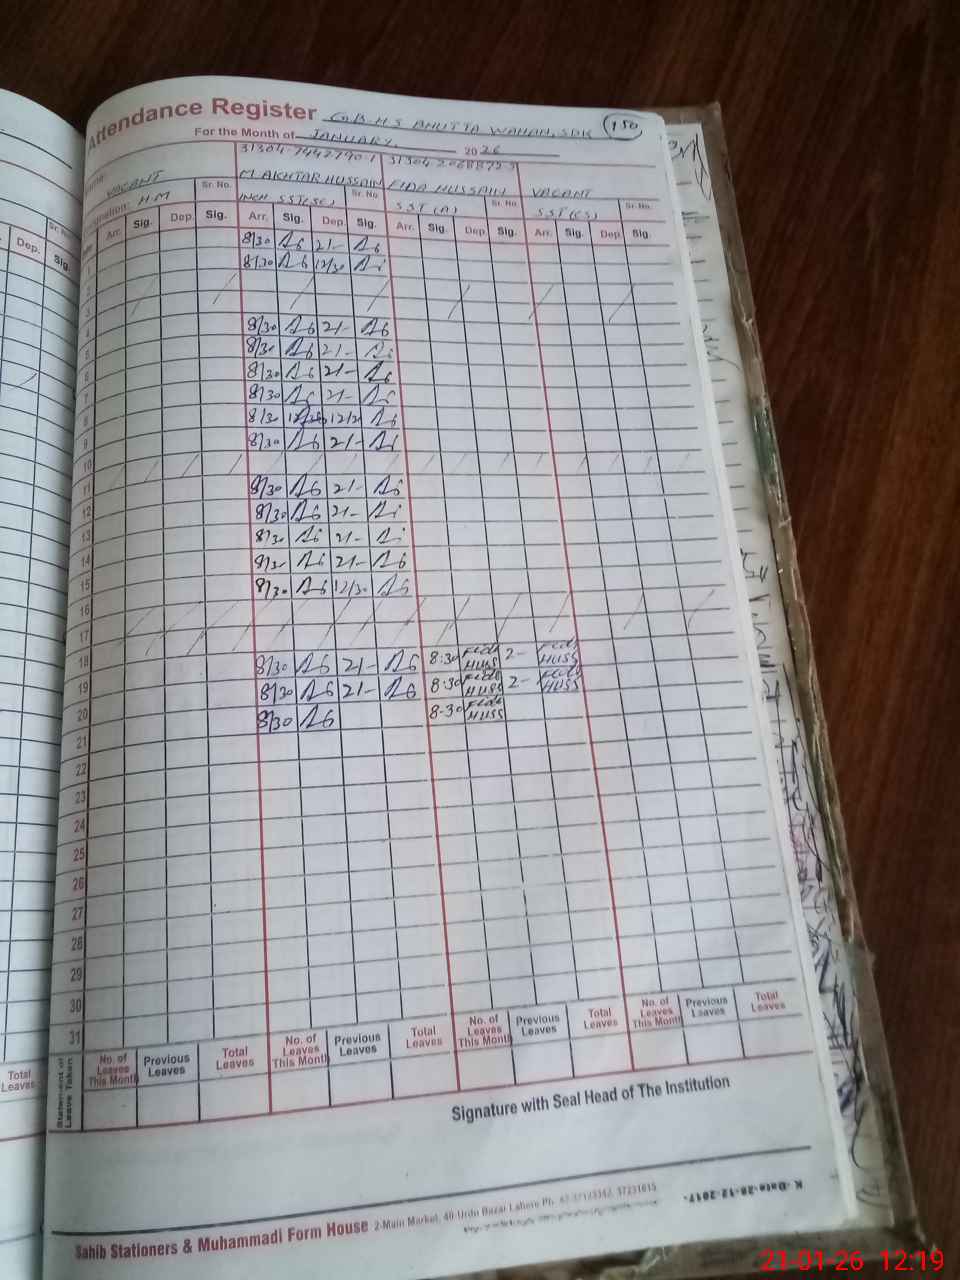 Attendance Register G.B.H.S BHUTTA WAHAN, SDK 150
For the Month of JANUARY. 2026
31304-7442790-1 31304-2068872-9
VACANT Sr. No. M. AKHTAR HUSSAIN Sr. No. FIDA HUSSAIN Sr. No. VACANT Sr. No.
H.M INCH SST(SC) SST (A) SST (CS)
Dep. Sig. Arr. Sig. Dep. Sig. Arr. Sig. Dep. Sig. Arr. Sig. Dep. Sig. Arr. Sig. Dep. Sig.
8/30 21-
1 8/30 12/30
2
3
4 8/30 21-
5 8/30 21-
6 8/30 21-
7 8/30 21-
8 8/30 12/30 12/30
9 8/30 21-
10
11 8/30 21-
12 8/30 21-
13 8/30 21-
14 8/30 21-
15 8/30 12/30
16
17
18 8/30 21- 8:30 Fida HUSS 2- Fida HUSS
19 8/30 21- 8:30 Fida HUSS 2- Fida HUSS
20 8/30 8-30 Fida HUSS
21
22
23
24
25
26
27
28
29
30
31
Total Leaves Statement of Leave Taken No. of Leaves This Month Previous Leaves Total Leaves No. of Leaves This Month Previous Leaves Total Leaves No. of Leaves This Month Previous Leaves Total Leaves No. of Leaves This Month Previous Leaves Total Leaves
Signature with Seal Head of The Institution
K-Date-28-12-2017-
Sahib Stationers & Muhammadi Form House 2-Main Market, 40-Urdu Bazar Lahore Ph. 37231815
21-01-26 12:19